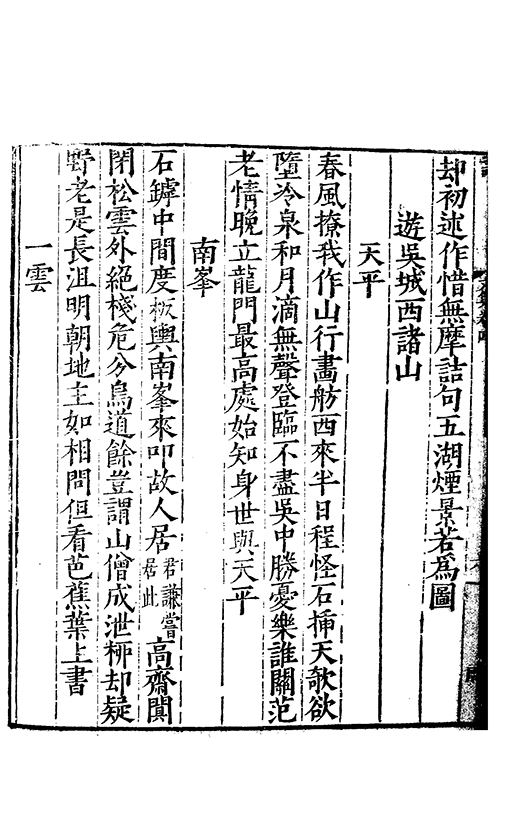 却初述作惜無摩詰句五湖煙景若爲圖
遊吳城西諸山
天平
春風撩我作山行畵舫西來半日程怪石揷天欹欲
墮冷泉和月滴無聲登臨不盡吳中勝憂樂誰關范
老情晚立龍門最高處始知身世與天平
南峯
石罅中間度板輿南峯來叩故人居君謙嘗居此高齋闃
閉松雲外絕棧危分鳥道餘豈謂山僧成泄柳却疑
野老是長沮明朝地主如相問但看芭蕉葉上書
一雲